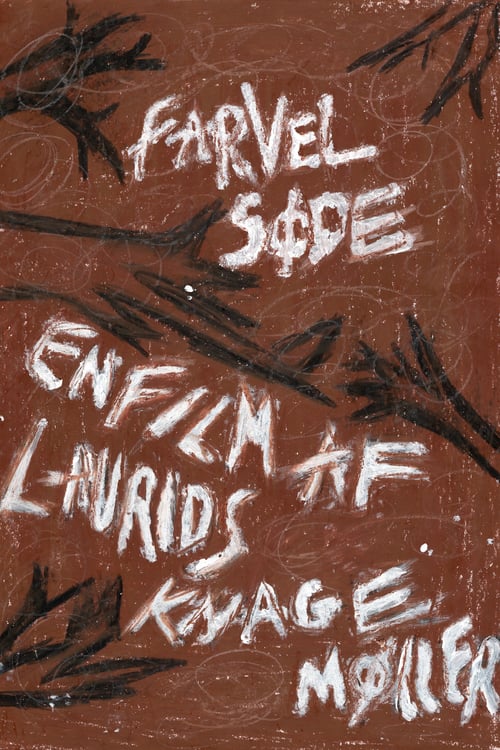 FARVEL
SØDE
EN FILM AF
LAURIDS
KNAGE
MØLLER